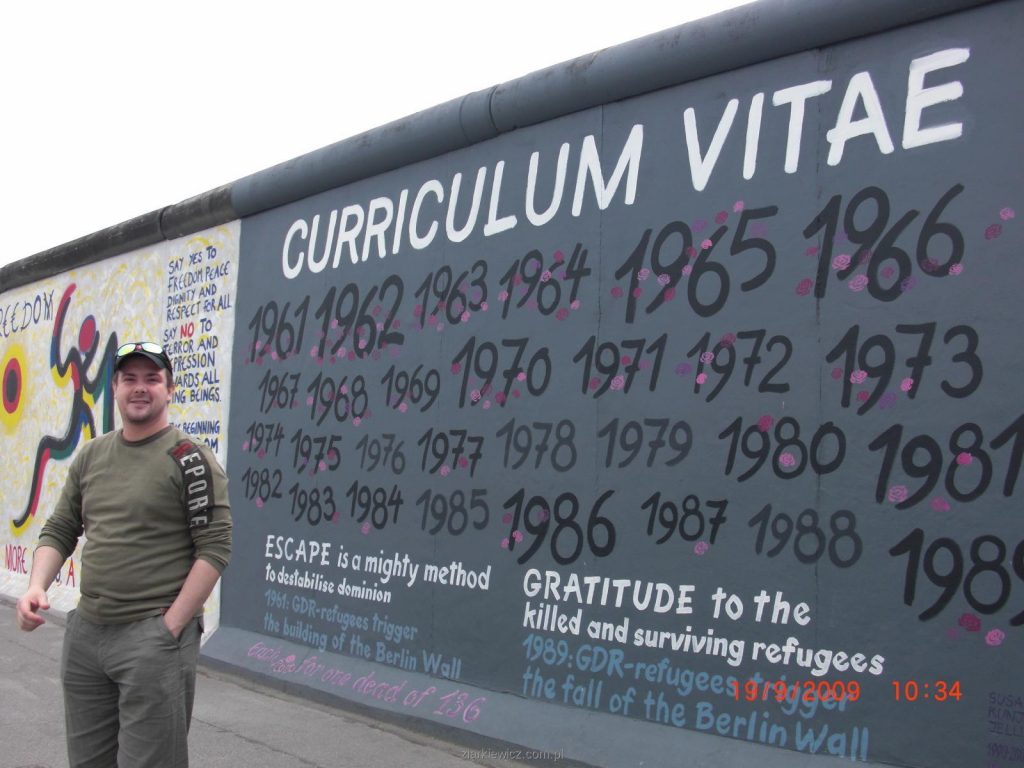 CURRICULUM VITAE
1961 1962 1963 1964 1965 1966
1967 1968 1969 1970 1971 1972 1973
1974 1975 1976 1977 1978 1979 1980 1981
1982 1983 1984 1985 1986 1987 1988 1989
ESCAPE is a mighty method
to destabilise dominion
1961: GDR-refugees trigger
the building of the Berlin Wall
each for one dead of 136
GRATITUDE to the
killed and surviving refugees
1989: GDR-refugees trigger
the fall of the Berlin Wall
SAY YES TO
FREEDOM PEACE
DIGNITY AND
RESPECT FOR ALL
SAY NO TO
TERROR AND
ALL
BEINGS.
BEGINNING
MORE
A
REEDOM
EPORE
19/9/2009 10:34
ziarkiewicz.com.pl